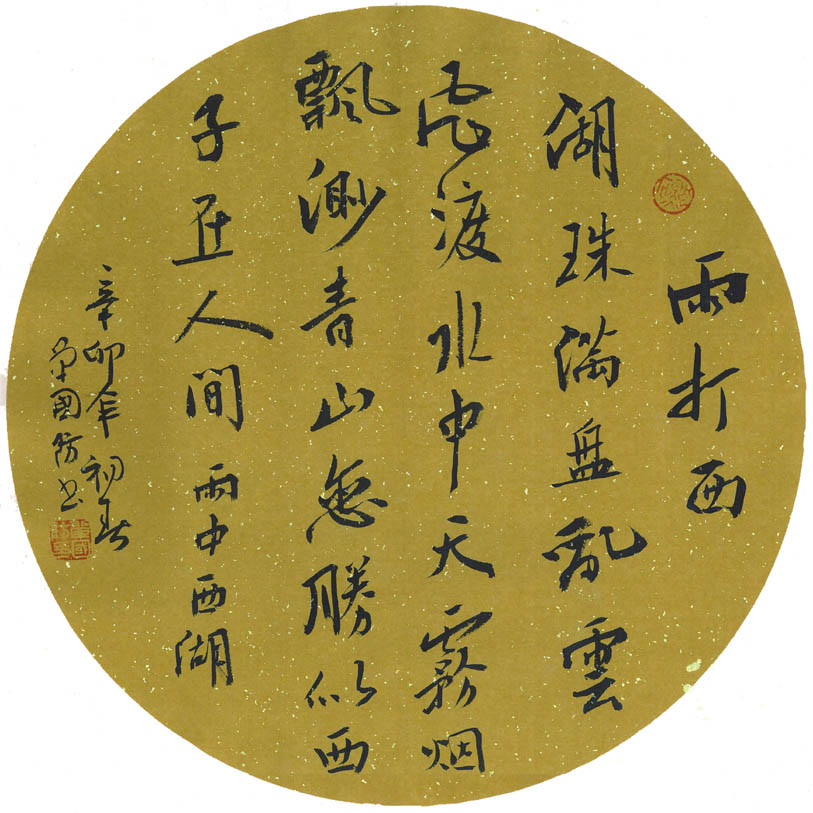 雨打西
湖珠满盘乱雲
飛渡水中天霧烟
飄渺青山忽勝似西
子在人間 雨中西湖
辛卯年初春
國防书